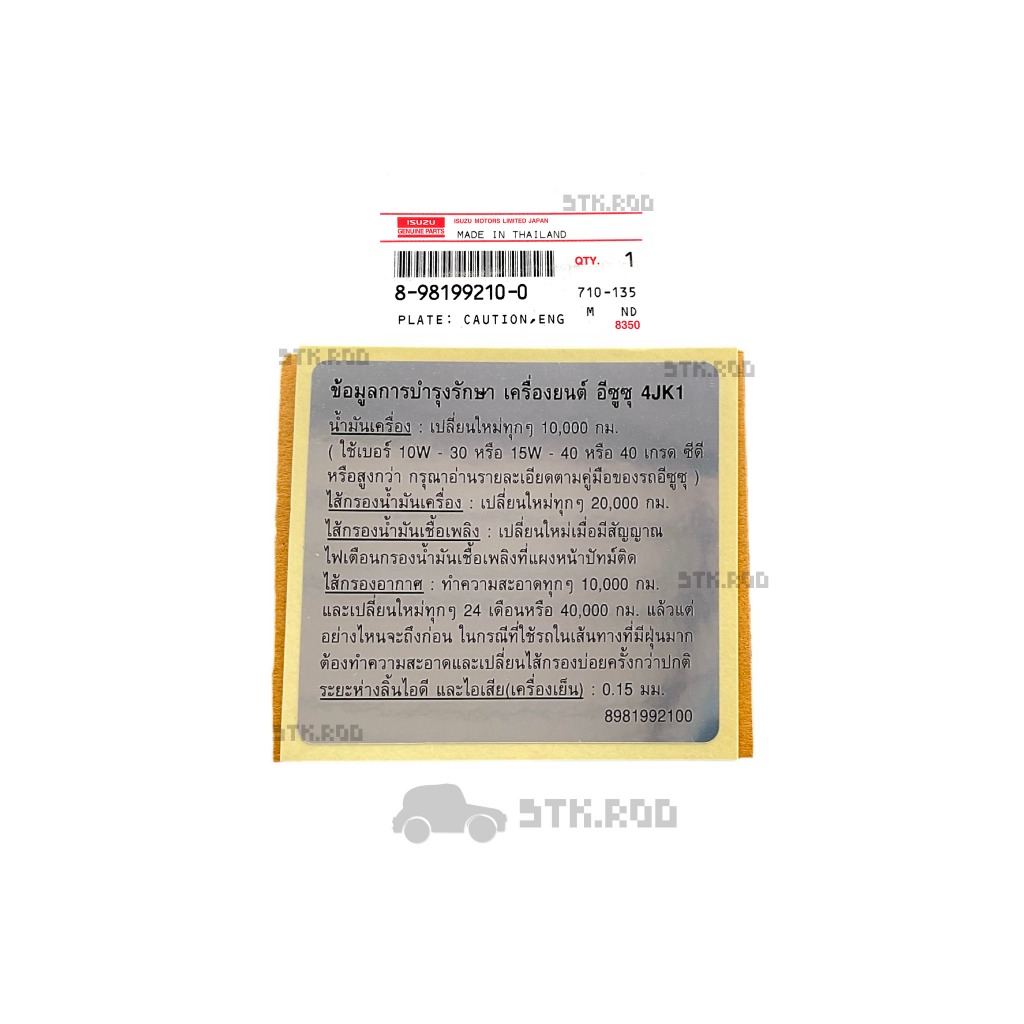 STK.ROD
ISUZU
GENUINE PARTS
ISUZU MOTORS LIMITED JAPAN
MADE IN THAILAND
QTY. 1
8-98199210-0
710-135
PLATE: CAUTION,ENG
M ND
8350
STK.ROD
STK.ROD
ข้อมูลการบำรุงรักษา เครื่องยนต์ อีซูซุ 4JK1
น้ำมันเครื่อง : เปลี่ยนใหม่ทุกๆ 10,000 กม.
( ใช้เบอร์ 10W - 30 หรือ 15W - 40 หรือ 40 เกรด ซีดี
หรือสูงกว่า กรุณาอ่านรายละเอียดตามคู่มือของรถอีซูซุ )
ไส้กรองน้ำมันเครื่อง : เปลี่ยนใหม่ทุกๆ 20,000 กม.
ไส้กรองน้ำมันเชื้อเพลิง : เปลี่ยนใหม่เมื่อมีสัญญาณ
ไฟเตือนกรองน้ำมันเชื้อเพลิงที่แผงหน้าปัทม์ติด
ไส้กรองอากาศ : ทำความสะอาดทุกๆ 10,000 กม.
STK.ROD
และเปลี่ยนใหม่ทุกๆ 24 เดือนหรือ 40,000 กม. แล้วแต่
อย่างไหนจะถึงก่อน ในกรณีที่ใช้รถในเส้นทางที่มีฝุ่นมาก
ต้องทำความสะอาดและเปลี่ยนไส้กรองบ่อยครั้งกว่าปกติ
ระยะห่างลิ้นไอดี และไอเสีย(เครื่องเย็น) : 0.15 มม.
8981992100
STK.ROD
STK.ROD